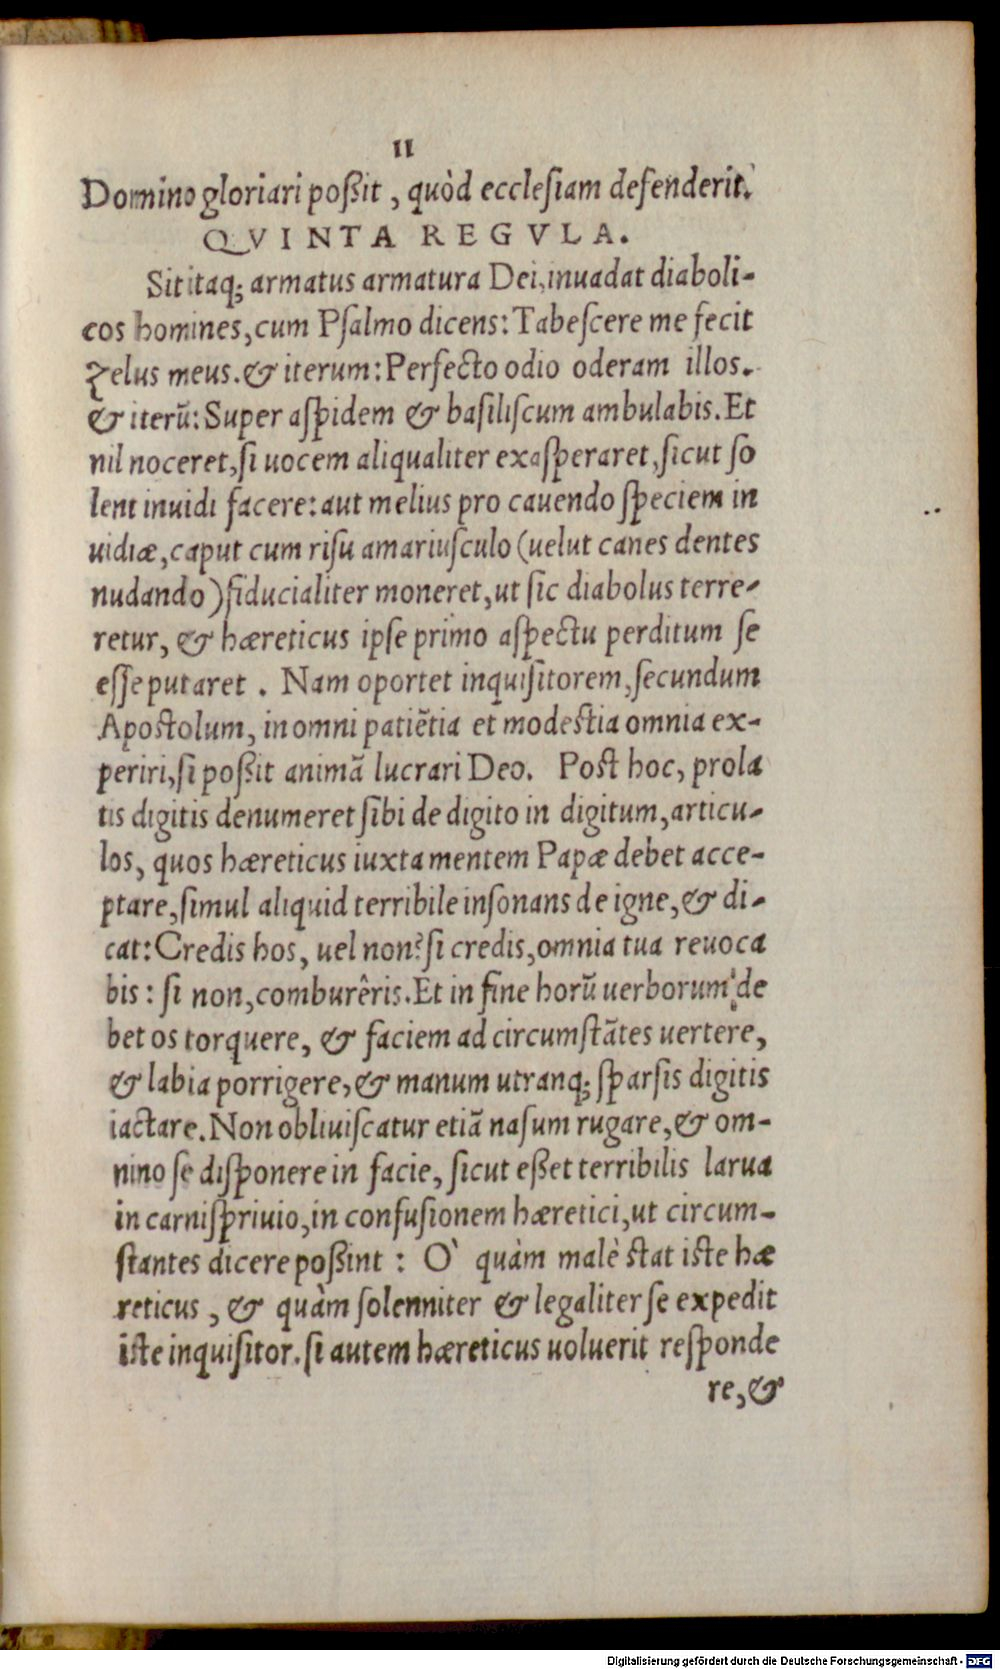 11
Domino gloriari poßit, quòd ecclesiam defenderit.
QVINTA REGVLA.
Sit itaq; armatus armatura Dei, inuadat diaboli-
cos homines, cum Psalmo dicens: Tabescere me fecit
zelus meus. & iterum: Perfecto odio oderam illos.
& iterũ: Super aspidem & basiliscum ambulabis. Et
nil noceret, si uocem aliqualiter exasperaret, sicut so
lent inuidi facere: aut melius pro cauendo speciem in
uidiæ, caput cum risu amariusculo (uelut canes dentes
nudando) fiducialiter moneret, ut sic diabolus terre-
retur, & hæreticus ipse primo aspectu perditum se
esse putaret. Nam oportet inquisitorem, secundum
Apostolum, in omni patiẽtia et modestia omnia ex-
periri, si poßit animã lucrari Deo. Post hoc, prola
tis digitis denumeret sibi de digito in digitum, articu-
los, quos hæreticus iuxta mentem Papæ debet acce-
ptare, simul aliquid terribile insonans de igne, & di-
cat: Credis hos, uel non? si credis, omnia tua reuoca
bis: si non, comburêris. Et in fine horũ uerborum de
bet os torquere, & faciem ad circumstãtes uertere,
& labia porrigere, & manum utranq; sparsis digitis
iactare. Non obliuiscatur etiã nasum rugare, & om-
nino se disponere in facie, sicut eßet terribilis larua
in carnispriuio, in confusionem hæretici, ut circum-
stantes dicere poßint: O` quàm malè stat iste hæ
reticus, & quàm solenniter & legaliter se expedit
iste inquisitor. si autem hæreticus uoluerit responde
re, &
Digitalisierung gefördert durch die Deutsche Forschungsgemeinschaft - DFG